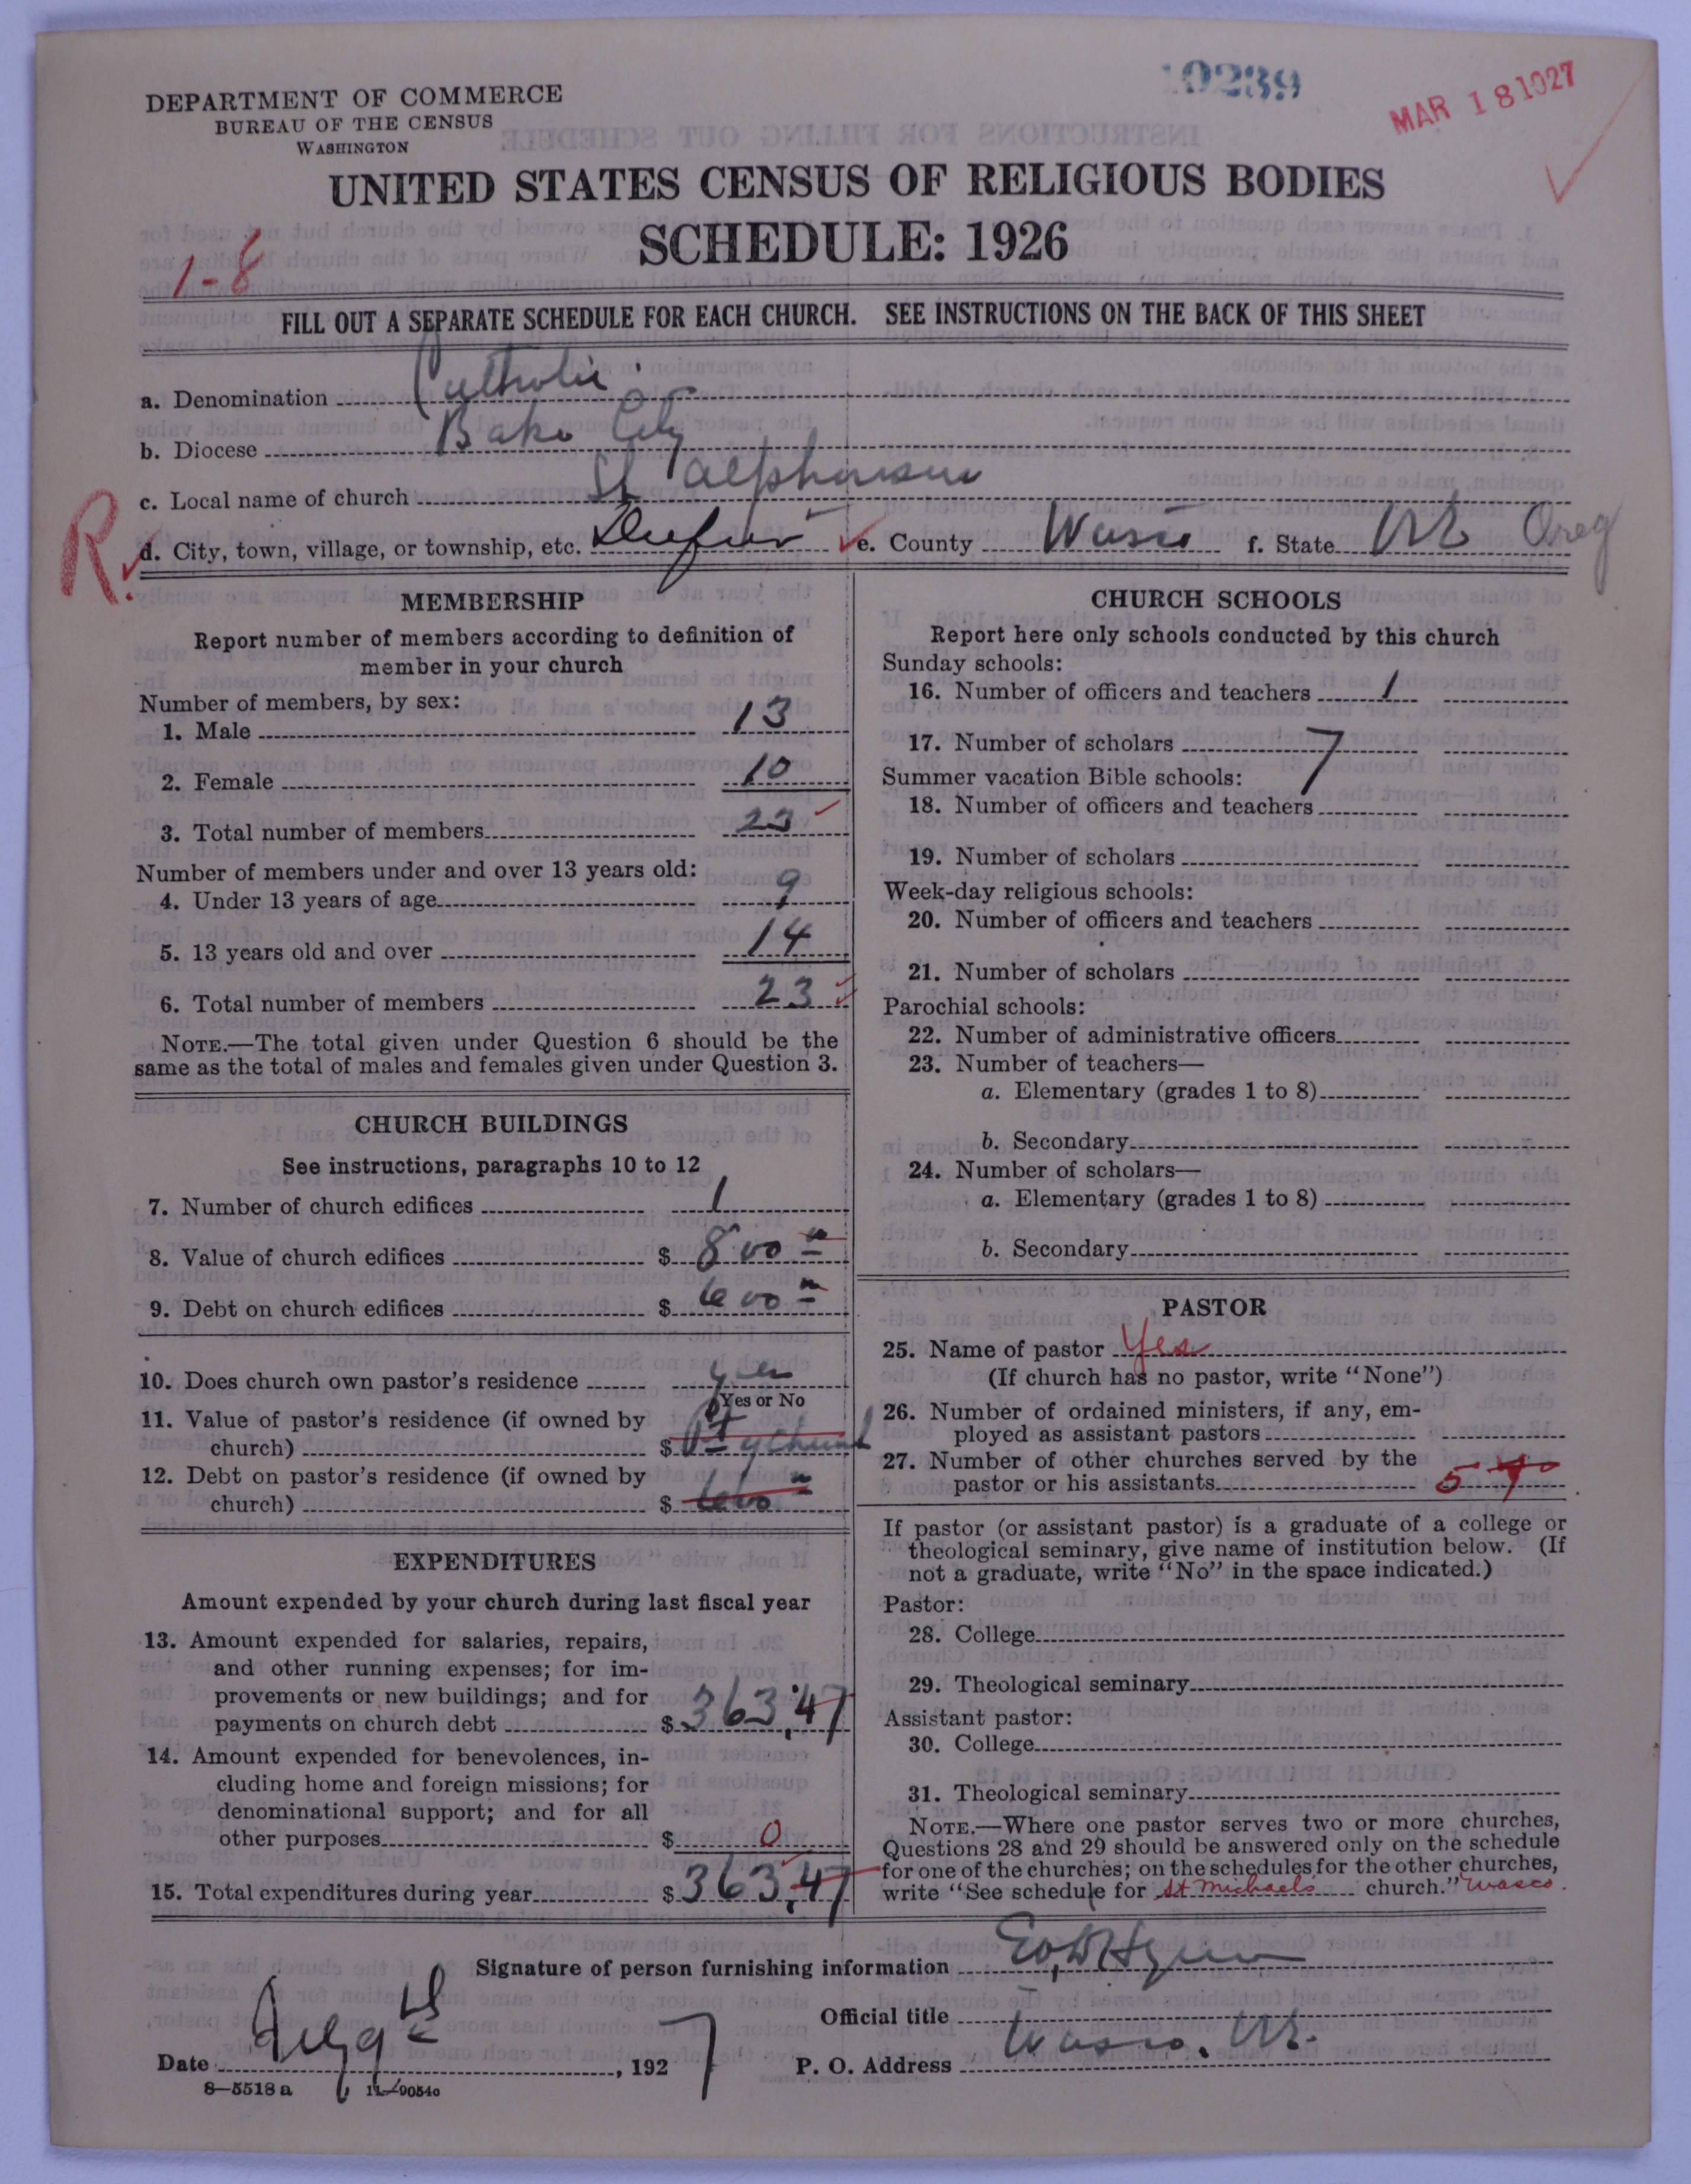 10239
MAR 18 1927
DEPARTMENT OF COMMERCE
BUREAU OF THE CENSUS
WASHINGTON
UNITED STATES CENSUS OF RELIGIOUS BODIES
SCHEDULE: 1926
1-8
FILL OUT A SEPARATE SCHEDULE FOR EACH CHURCH. SEE INSTRUCTIONS ON THE BACK OF THIS SHEET
a. Denomination Catholic
b. Diocese Baker City
c. Local name of church St Alphonsus
R.
d. City, town, village, or township, etc. Dufur e. County Wasco f. State Ore Oreg
MEMBERSHIP
Report number of members according to definition of
member in your church
Number of members, by sex:
1. Male 13
2. Female 10
3. Total number of members 23
Number of members under and over 13 years old:
4. Under 13 years of age 9
5. 13 years old and over 14
6. Total number of members 23
NOTE.—The total given under Question 6 should be the
same as the total of males and females given under Question 3.
CHURCH BUILDINGS
See instructions, paragraphs 10 to 12
7. Number of church edifices 1
8. Value of church edifices $ 800
9. Debt on church edifices $ 600
10. Does church own pastor's residence yes
Yes or No
11. Value of pastor's residence (if owned by
church) $ Pt of church
12. Debt on pastor's residence (if owned by
church) $ 600
EXPENDITURES
Amount expended by your church during last fiscal year
13. Amount expended for salaries, repairs,
and other running expenses; for im-
provements or new buildings; and for
payments on church debt $ 363.47
14. Amount expended for benevolences, in-
cluding home and foreign missions; for
denominational support; and for all
other purposes $ 0
15. Total expenditures during year $ 363.47
CHURCH SCHOOLS
Report here only schools conducted by this church
Sunday schools:
16. Number of officers and teachers 1
17. Number of scholars 7
Summer vacation Bible schools:
18. Number of officers and teachers
19. Number of scholars
Week-day religious schools:
20. Number of officers and teachers
21. Number of scholars
Parochial schools:
22. Number of administrative officers
23. Number of teachers—
a. Elementary (grades 1 to 8)
b. Secondary
24. Number of scholars—
a. Elementary (grades 1 to 8)
b. Secondary
PASTOR
25. Name of pastor Yes
(If church has no pastor, write "None")
26. Number of ordained ministers, if any, em-
ployed as assistant pastors
27. Number of other churches served by the
pastor or his assistants 5
If pastor (or assistant pastor) is a graduate of a college or
theological seminary, give name of institution below. (If
not a graduate, write "No" in the space indicated.)
Pastor:
28. College
29. Theological seminary
Assistant pastor:
30. College
31. Theological seminary
NOTE.—Where one pastor serves two or more churches,
Questions 28 and 29 should be answered only on the schedule
for one of the churches; on the schedules for the other churches,
write "See schedule for St Michaels church." Wasco.
Signature of person furnishing information
Official title
Date , 1927
P. O. Address Wasco. Ore.
8—5518 a